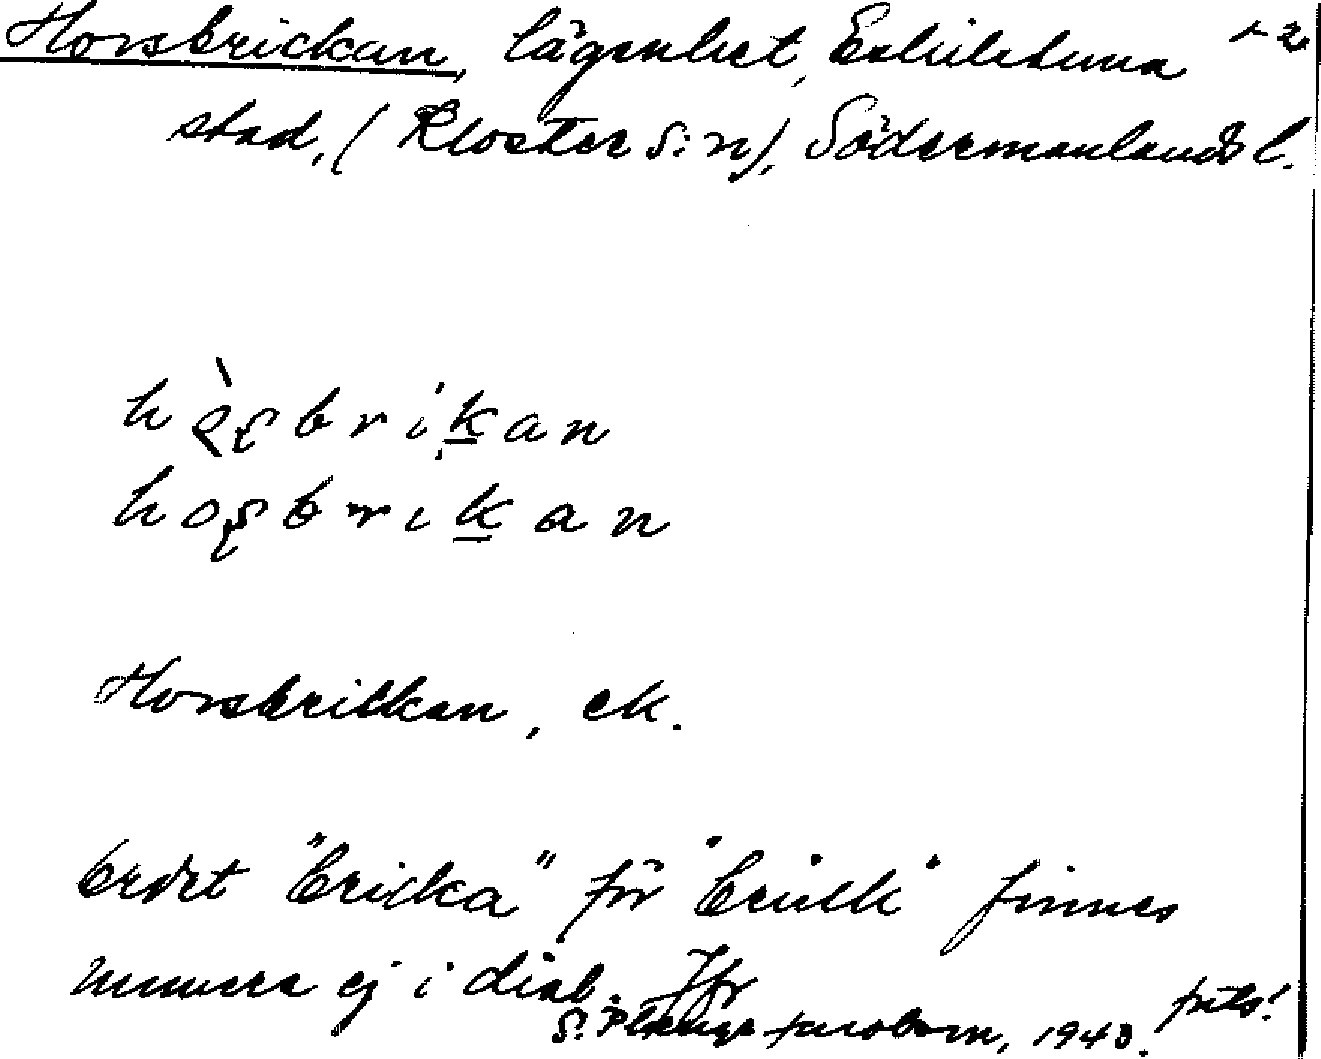 Horsbrickan, lägenhet, Eskilstuna 1-2.
stad, (Kloster s:n), Södermanlands l.
hò̜ʂbrik̲an
hoʂbrik̲an
Horsbrickan, ek.
ordet "bricka" för "brick" finnes
numera ej i dial. Jfr
1943.